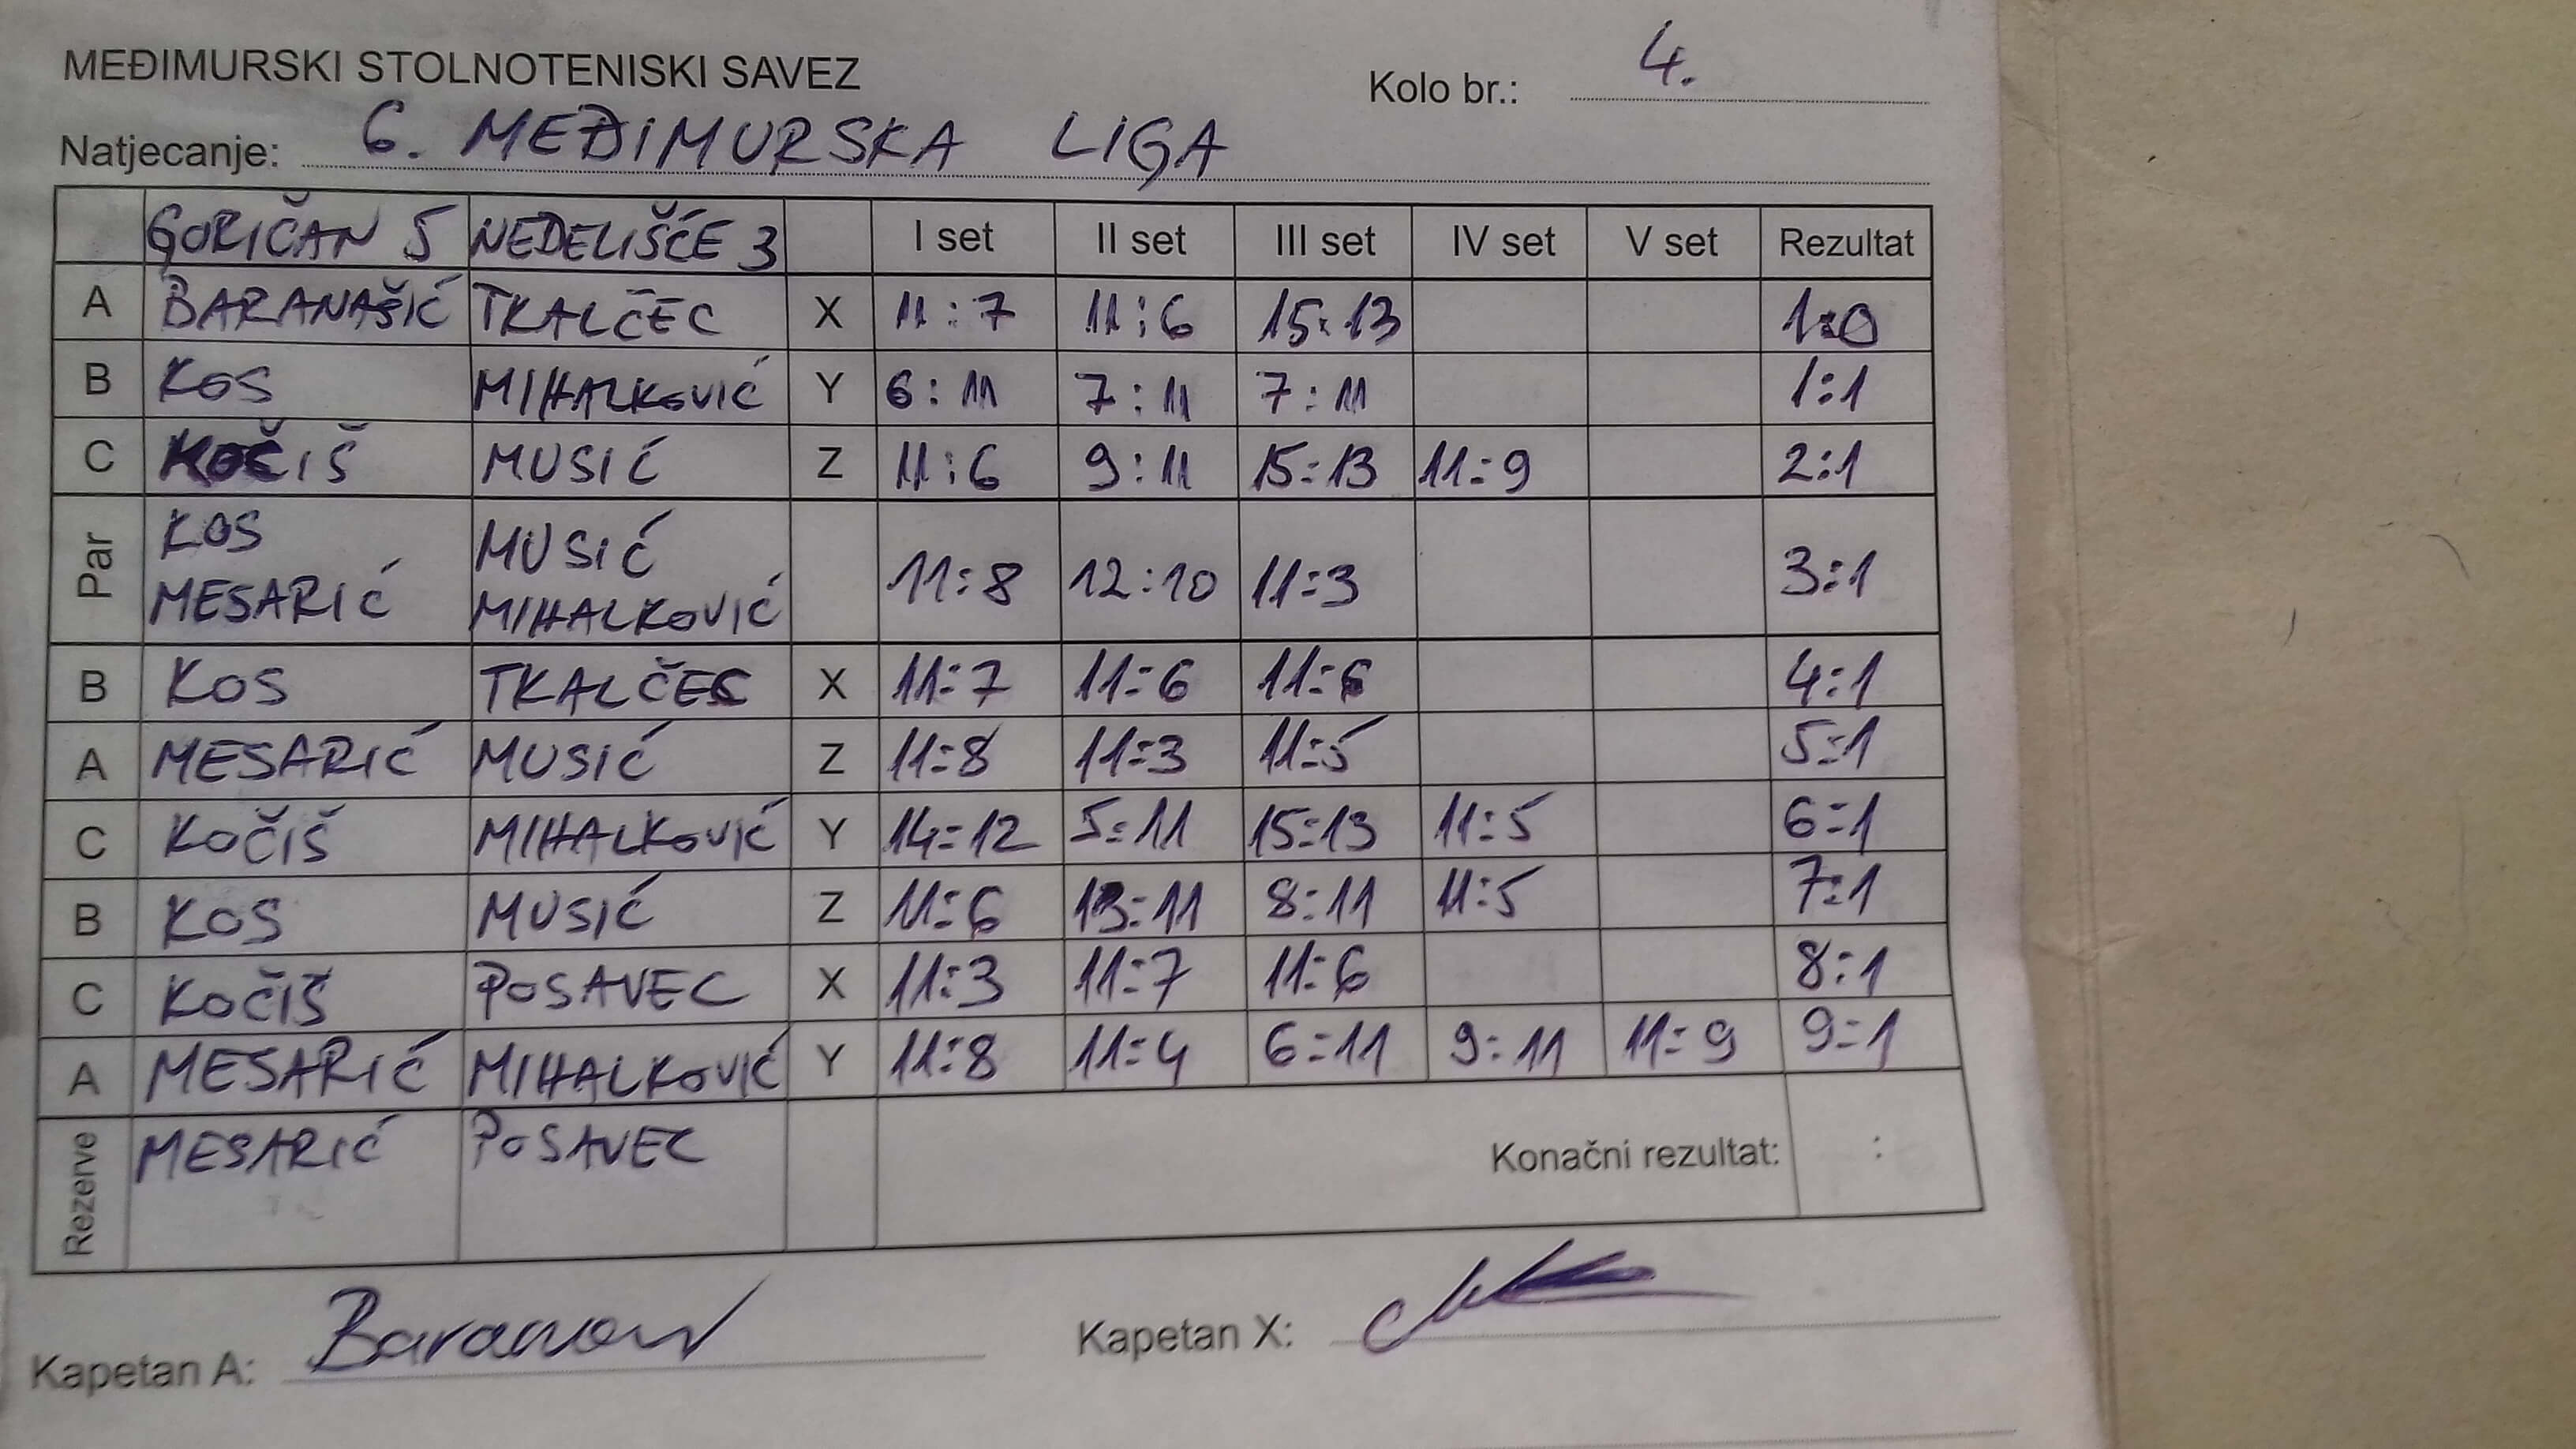 MEĐIMURSKI STOLNOTENISKI SAVEZ
Kolo br.: 4.
Natjecanje: 6. MEĐIMURSKA LIGA
GORIČAN 5 NEDELIŠĆE 3 I set II set III set IV set V set Rezultat
A BARANAŠIĆ TKALČEC X 11:7 11:6 15:13 1:0
B KOS MIHALKOVIĆ Y 6:11 7:11 7:11 1:1
C KOČIŠ MUSIĆ Z 11:6 9:11 15:13 11:9 2:1
Par KOS MESARIĆ MUSIĆ MIHALKOVIĆ 11:8 12:10 11:3 3:1
B KOS TKALČEC X 11:7 11:6 11:6 4:1
A MESARIĆ MUSIĆ Z 11:8 11:3 11:5 5:1
C KOČIŠ MIHALKOVIĆ Y 14:12 5:11 15:13 11:5 6:1
B KOS MUSIĆ Z 11:6 13:11 8:11 11:5 7:1
C KOČIŠ POSAVEC X 11:3 11:7 11:6 8:1
A MESARIĆ MIHALKOVIĆ Y 11:8 11:4 6:11 9:11 11:9 9:1
Rezerve MESARIĆ POSAVEC Konačni rezultat: :
Kapetan A: Kapetan X: